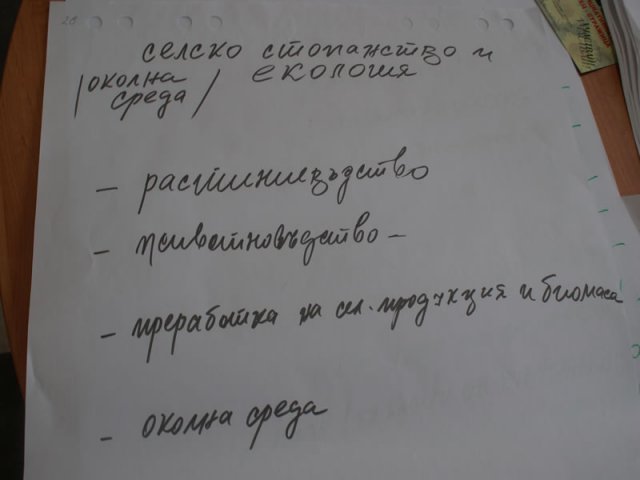 20
селско стопанство и
/околна среда/ екология
- растениевъдство
- животновъдство -
- преработка на сел. продукция и биомаса -
- околна среда